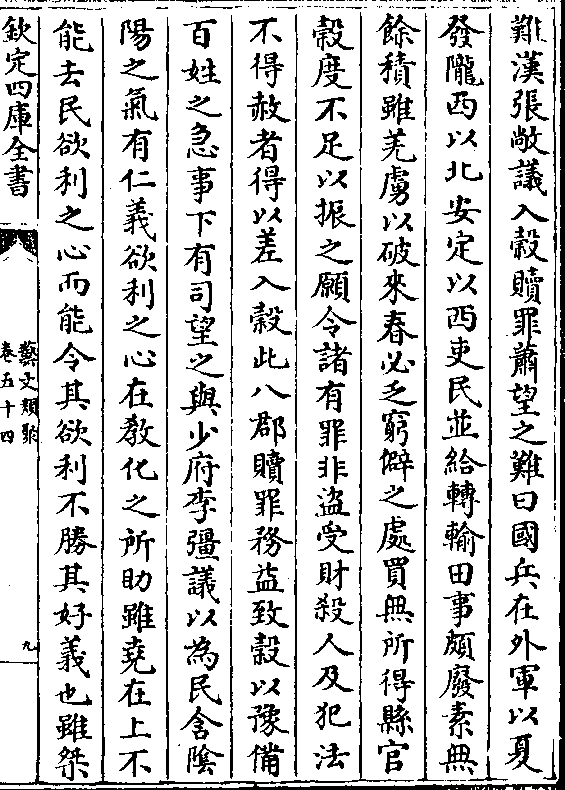 難漢張敞議入穀贖罪蕭望之難曰國兵在外軍以夏
發隴西以北安定以西吏民並給轉輸田事頗廢素無
餘積雖羌虜以破來春必乏窮僻之處買無所得縣官
穀度不足以振之願令諸有罪非盜受財殺人及犯法
不得赦者得以差入穀此八郡贖罪務益致穀以豫備
百姓之急事下有司望之與少府李彊議以為民含陰
陽之氣有仁義欲利之心在教化之所助雖堯在上不
能去民欲利之心而能令其欲利不勝其好義也雖桀
欽定四庫全書
藝文類聚
卷五十四
九